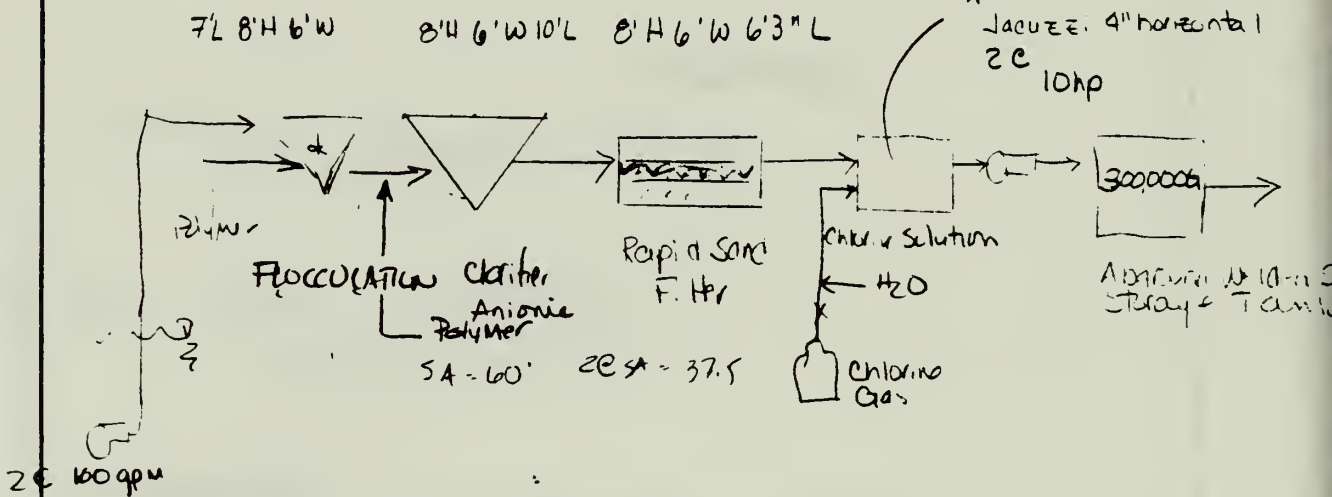 7'L 8'H 6'W 8'H 6'W 10'L 8'H 6'W 6'3"L
Jacuzzi 4" horizontal
2@
10hp
Polymer
FLOCCULATION
Clarifier
Anionic
Polymer
SA - 60'
Rapid Sand
Filter
2@ SA - 37.5
Chlorine Solution
H2O
Chlorine
Gas
300,000G
Storage Tank
2@ 100 gpm